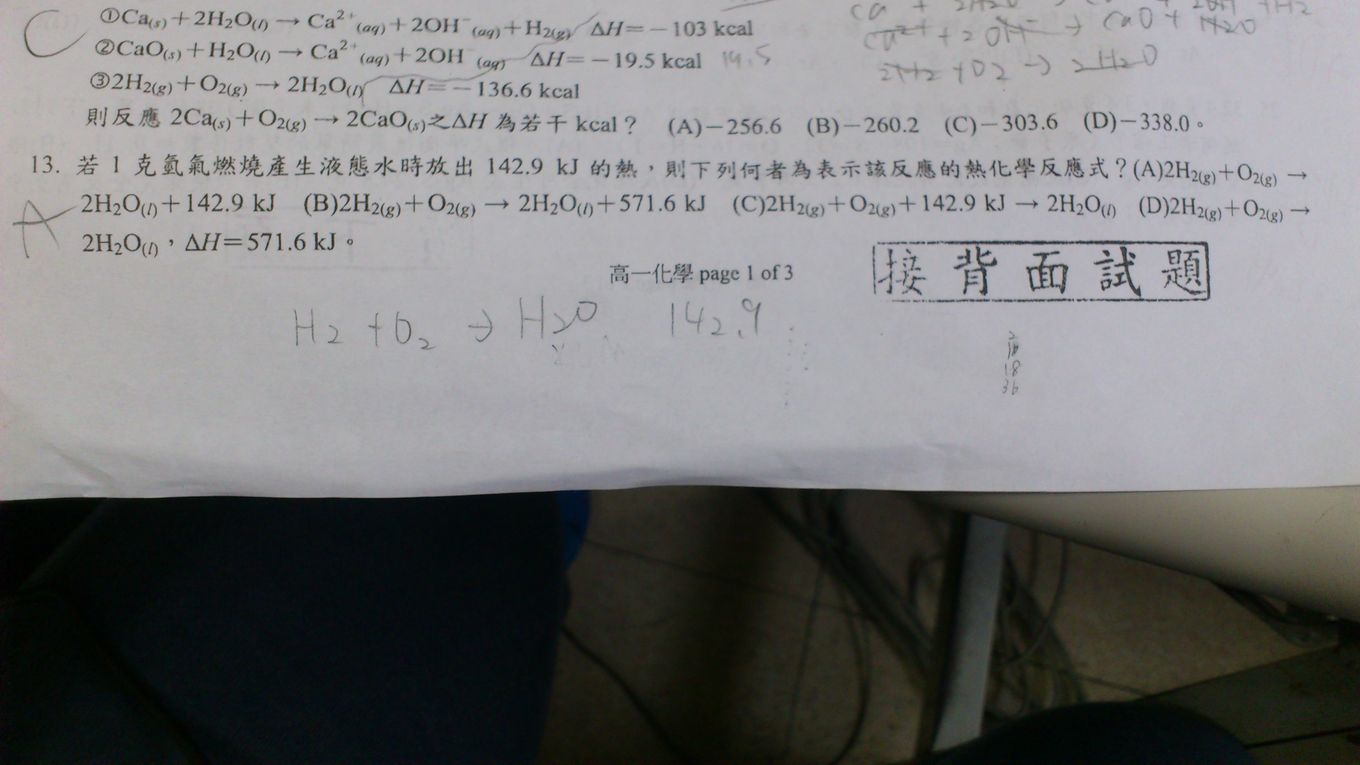 C
①Ca(s)+2H₂O(l) → Ca²⁺(aq)+2OH⁻(aq)+H₂(g) ΔH=−103 kcal
②CaO(s)+H₂O(l) → Ca²⁺(aq)+2OH⁻(aq) ΔH=−19.5 kcal 19.5
③2H₂(g)+O₂(g) → 2H₂O(l) ΔH=−136.6 kcal
Ca²⁺+2OH⁻ → CaO+H₂O
2H₂+O₂ → 2H₂O
則反應 2Ca(s)+O₂(g) → 2CaO(s)之ΔH 為若干 kcal? (A)−256.6 (B)−260.2 (C)−303.6 (D)−338.0。
13. 若 1 克氫氣燃燒產生液態水時放出 142.9 kJ 的熱,則下列何者為表示該反應的熱化學反應式?(A)2H₂(g)+O₂(g) →
A
2H₂O(l)+142.9 kJ (B)2H₂(g)+O₂(g) → 2H₂O(l)+571.6 kJ (C)2H₂(g)+O₂(g)+142.9 kJ → 2H₂O(l) (D)2H₂(g)+O₂(g) →
2H₂O(l),ΔH=571.6 kJ。
高一化學 page 1 of 3
接背面試題
H₂+O₂ → H₂O 142.9
18
36